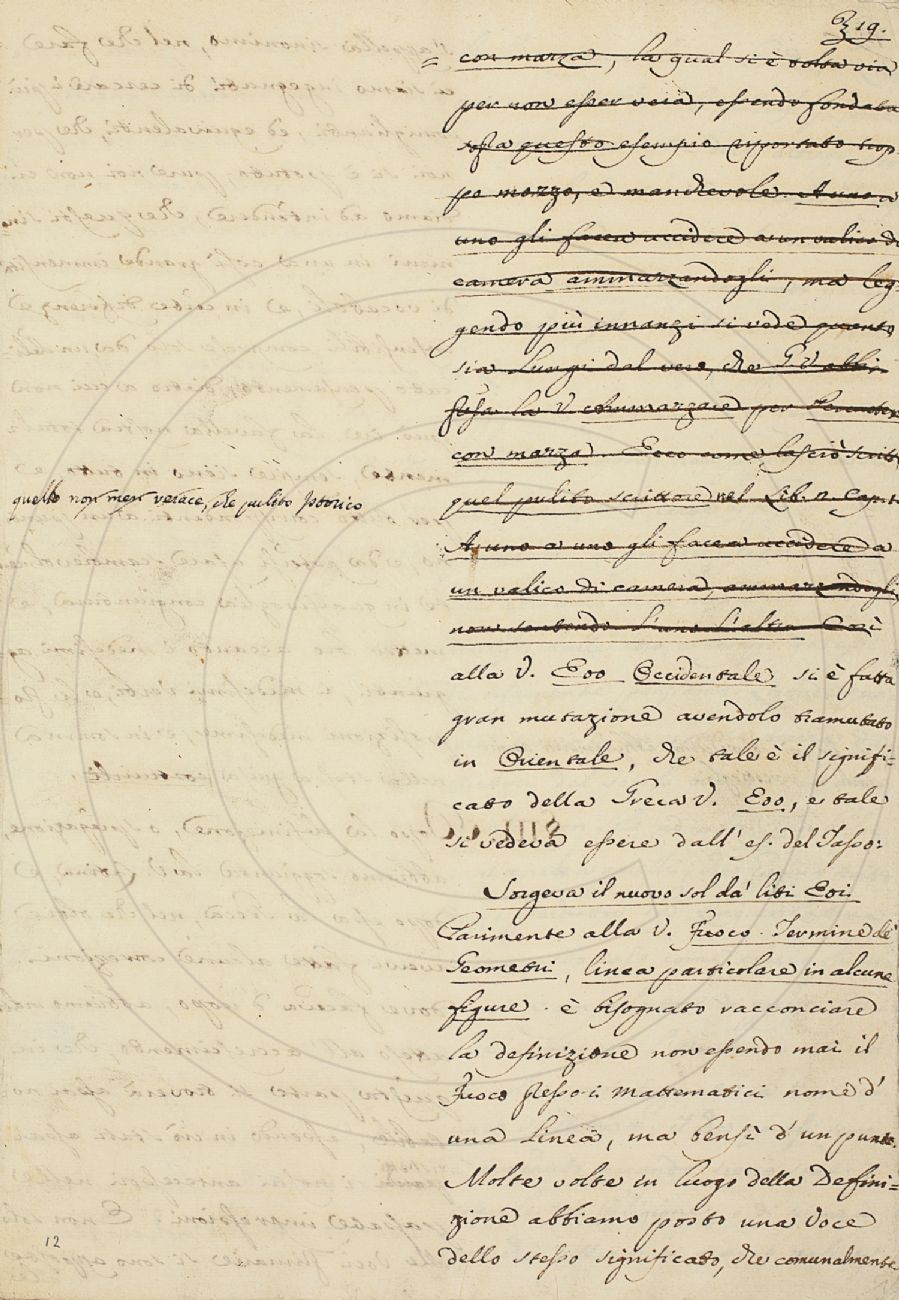 19.
= con marza, la qual si è tolta via
per non esser vera, essendo fondata
sopra questo esempio riportato trop
po mozzo, e manchevole. A uno a
uno gli facea uccidere a un valico di
camera ammarzandogli, ma leg
gendo più innanzi si vede quanto
sia lungi dal vero, che G. V. abbia
la V. Ammarzare per
con marza. Ecco come lasciò scritto
quel pulito scrittore nel Lib. Cap.
quello non men verace, che pulito Storico
A uno a uno gli facea uccidere a
un valico di camera, ammarzandogli,
non sentendo l'uno l'altro. Così
alla V. Eoo Occidentale si è fatta
gran mutazione avendolo tramutato
in Orientale, che tale è il signifi=
cato della Greca V. Eoo, e tale
si vedeva essere dall' es. del Tasso:
Sorgeva il nuovo sol da' liti Eoi.
Parimente alla V. Fuoco. Termine de'
Geometri, linea particolare in alcune
figure. è bisognato racconciare
la definizione non essendo mai il
Fuoco presso i Mattematici nome d'
una Linea, ma bensì d' un punto.
Molte volte in luogo della Defini=
zione abbiamo posto una Voce
dello stesso significato, che comunalmente
12